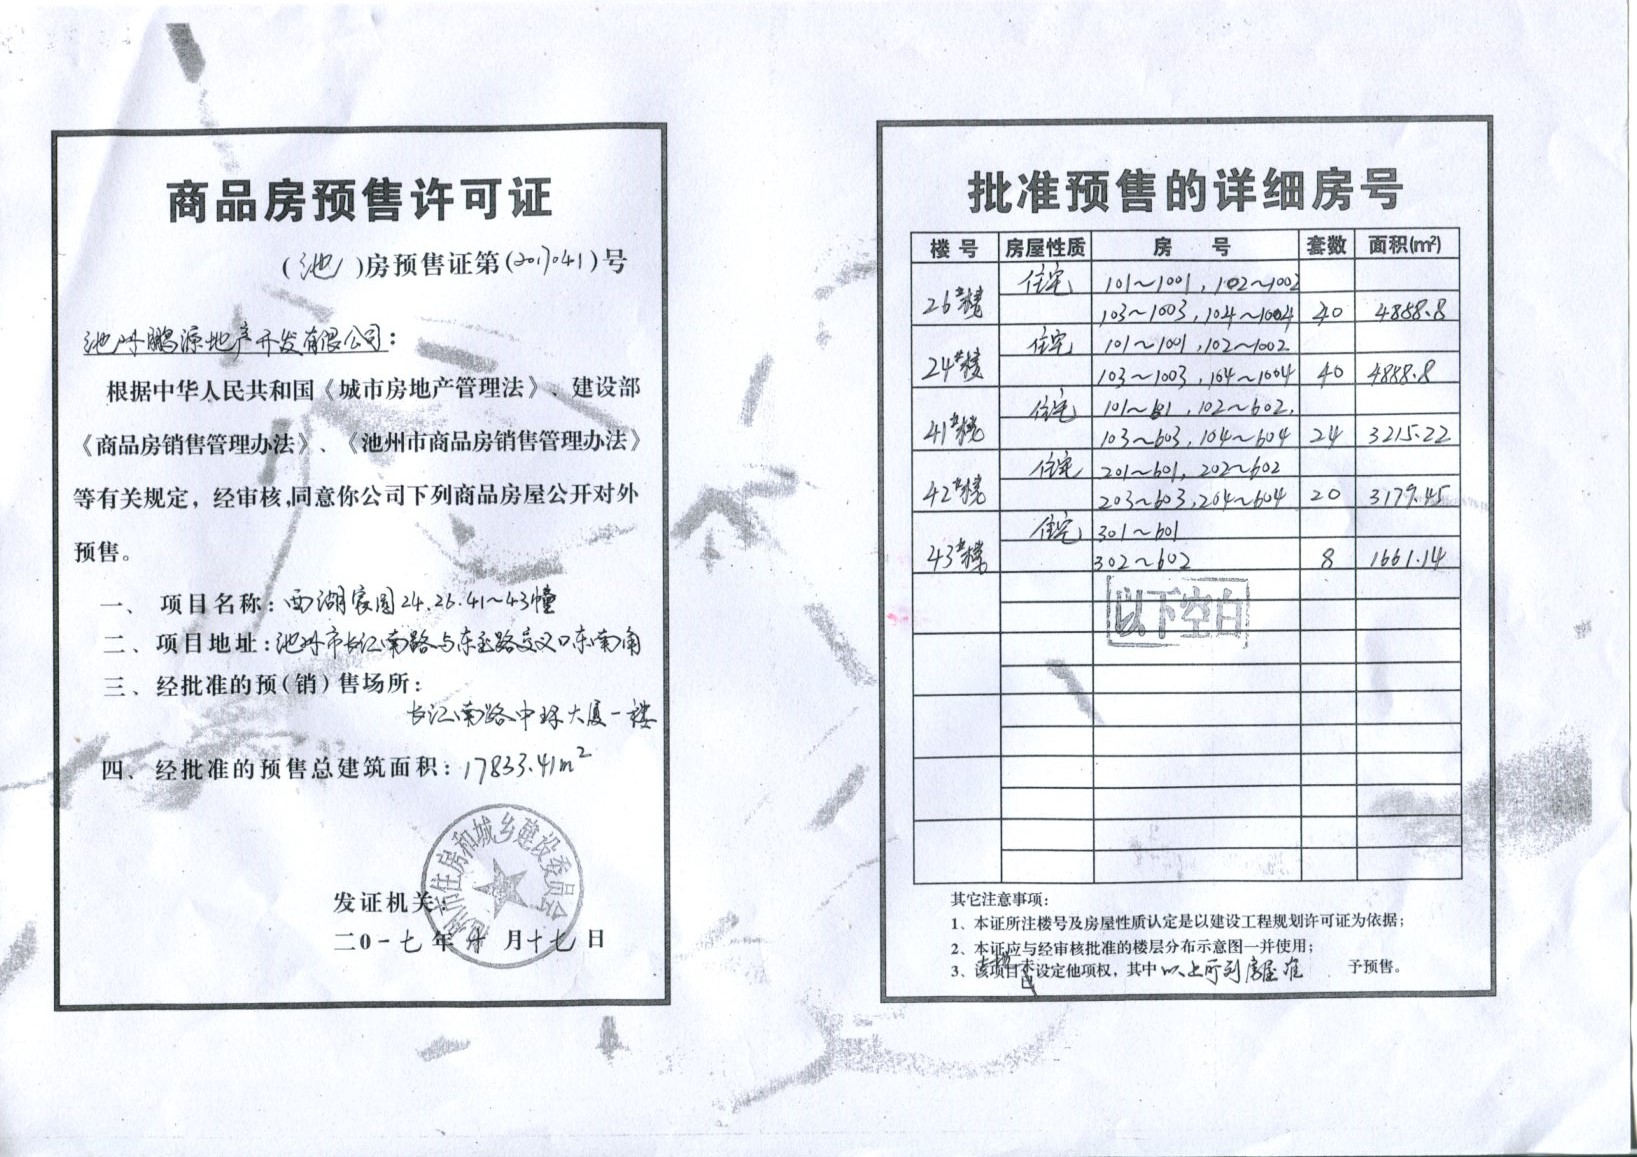 商品房预售许可证
(池)房预售证第(2017041)号
池州鹏源地产开发有限公司：
根据中华人民共和国《城市房地产管理法》、建设部
《商品房销售管理办法》、《池州市商品房销售管理办法》
等有关规定，经审核,同意你公司下列商品房屋公开对外
预售。
一、项目名称：西湖家园24.26.41~43幢
二、项目地址：池州市长江南路与东至路交叉口东南角
三、经批准的预(销)售场所：
长江南路中环大厦一楼
四、经批准的预售总建筑面积：17833.41m²
池州市住房和城乡建设委员会
发证机关：
二0一七年 月十七日
批准预售的详细房号
楼号 房屋性质 房号 套数 面积(m²)
26#楼 住宅 101~1001，102~1002
103~1003，104~1004 40 4888.8
24#楼 住宅 101~1001，102~1002
103~1003，104~1004 40 4888.8
41#楼 住宅 101~601，102~602，
103~603，104~604 24 3215.22
42#楼 住宅 201~601，202~602
203~603，204~604 20 3179.45
43#楼 住宅 301~601
302~602 8 1661.14
以下空白
其它注意事项：
1、本证所注楼号及房屋性质认定是以建设工程规划许可证为依据；
2、本证应与经审核批准的楼层分布示意图一并使用；
3、该项目未设定他项权，其中以上所列房屋准予预售。